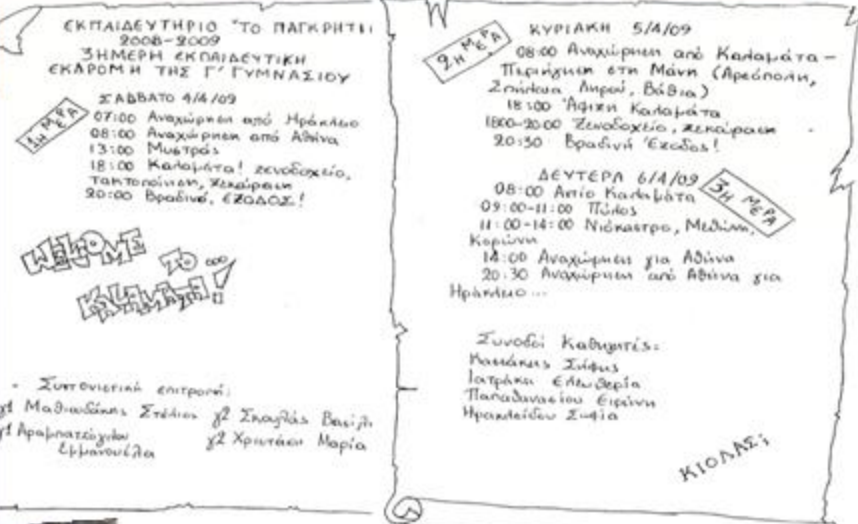 ΕΚΠΑΙΔΕΥΤΗΡΙΟ "ΤΟ ΠΑΓΚΡΗΤΙ
2008-2009
3ΗΜΕΡΗ ΕΚΠΑΙΔΕΥΤΙΚΗ
ΕΚΔΡΟΜΗ ΤΗΣ Γ' ΓΥΜΝΑΣΙΟΥ
1Η ΜΕΡΑ
ΣΑΒΒΑΤΟ 4/4/09
07:00 Αναχώρηση από Ηράκλειο
08:00 Αναχώρηση από Αθήνα
13:00 Μυστράς
18:00 Καλαμάτα! Ξενοδοχείο,
Τακτοποίηση, Ξεκούραση
20:00 Βραδινό, ΕΞΟΔΟΣ!
WELCOME
TO ...
KALAMATA!!
- Συντονιστική επιτροπή:
γ1 Μαθιουδάκης Στέλιος γ2 Σκουλάς Βασίλη
γ1 γ2 Χριστάκη Μαρία
Εμμανουέλα
2Η ΜΕΡΑ
ΚΥΡΙΑΚΗ 5/4/09
08:00 Αναχώρηση από Καλαμάτα -
Περιήγηση στη Μάνη (Αρεόπολη,
Σπήλαια Διρού, Βάθια)
18:00 Άφιξη Καλαμάτα
1800-20:00 Ξενοδοχείο, ξεκούραση
20:30 Βραδινή Έξοδος!
ΔΕΥΤΕΡΑ 6/4/09
3Η ΜΕΡΑ
08:00 Αντίο Καλαμάτα
09:00-11:00 Πύλος
11:00-14:00 Νιόκαστρο, Μεθώνη,
Κορώνη
14:00 Αναχώρηση για Αθήνα
20:30 Αναχώρηση από Αθήνα για
Ηράκλειο...
Συνοδοί Καθηγητές:
Κασάκης Σήφης
Ιατράκη Ελευθερία
Παπαθανασίου Ειρήνη
Ηρακλείδου Σοφία
ΚΙΟΛΑΣ;